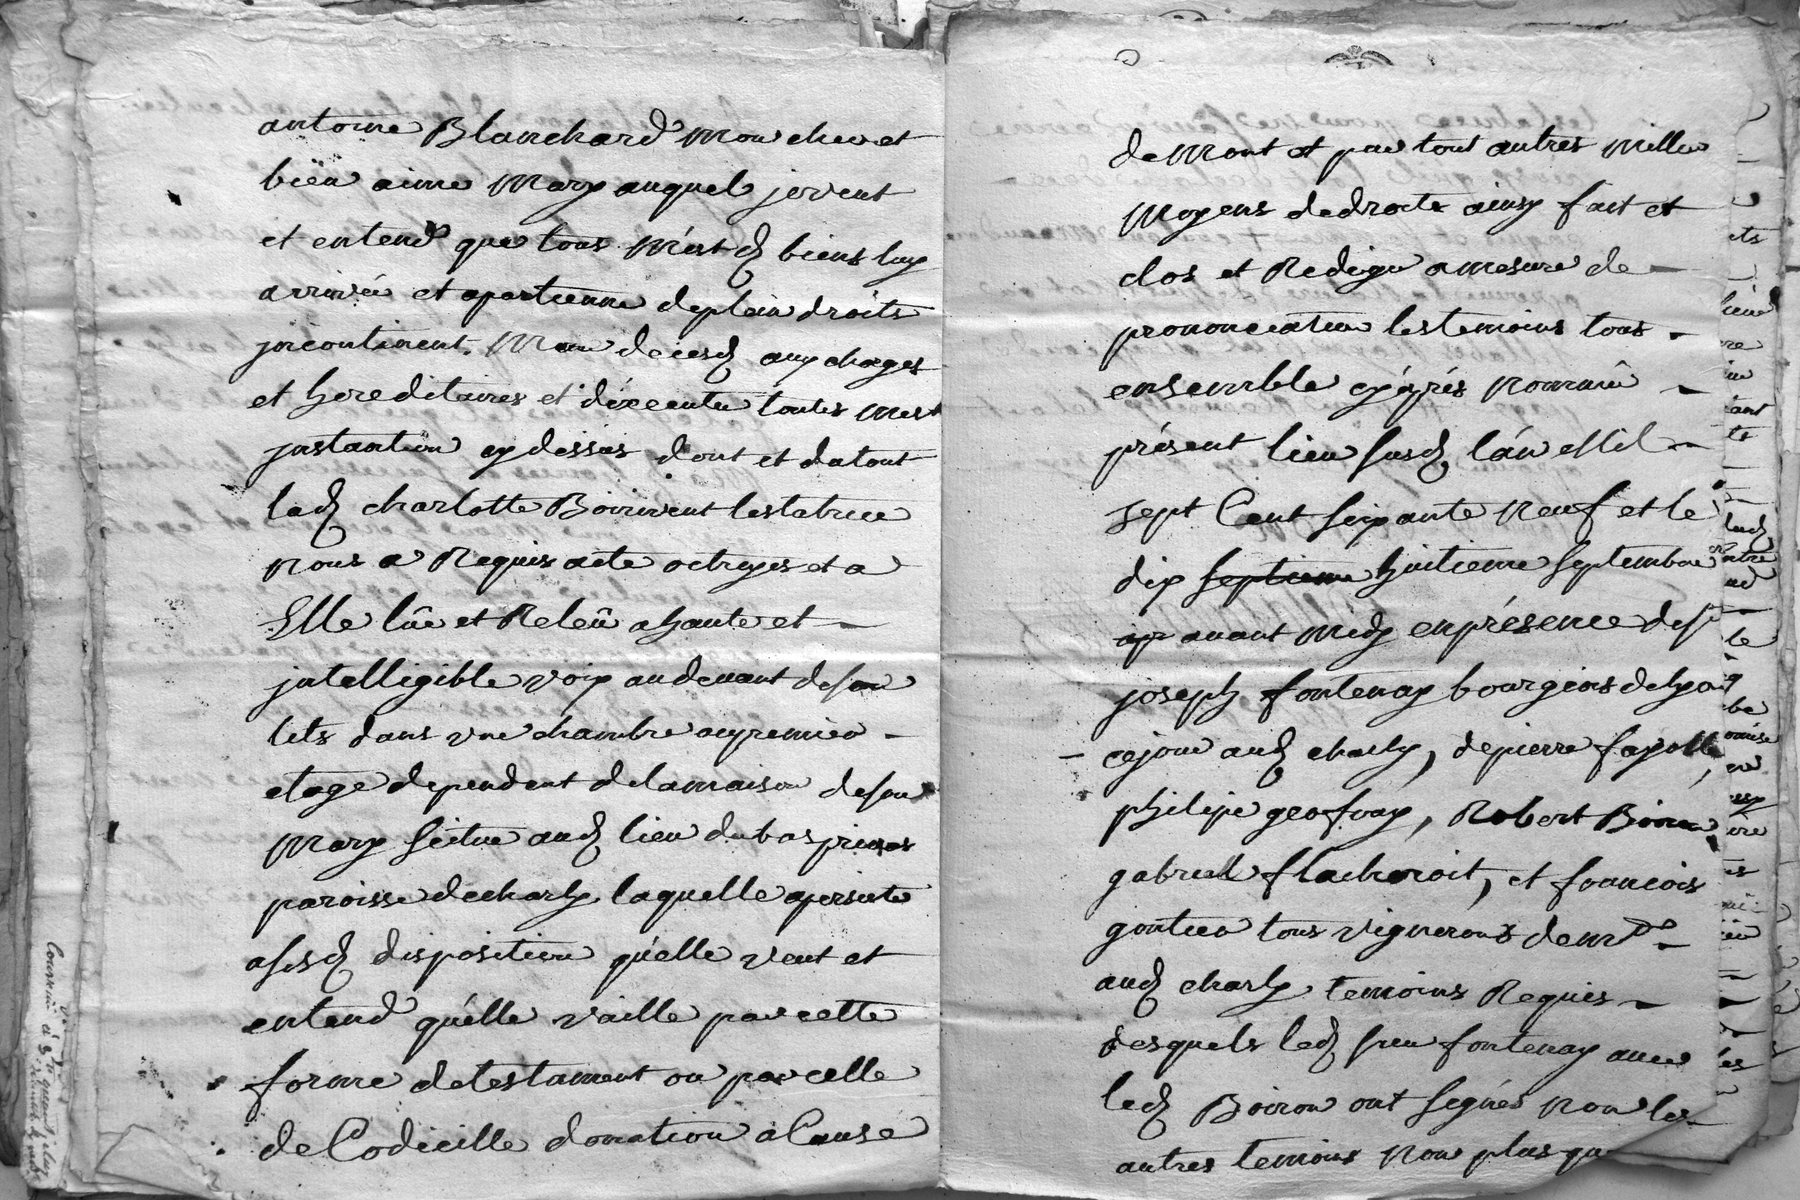 antoine Blanchard mon cher et
bien aimé Mary auquel je veut
et entend que tous mest d biens luy
arrivée et apartienne deplein droits
jncontinent. Mon decesd aux charges
et hereditaires et d'éxecuter toutes mest
justantion cy dessus dont et du tout
lad charlotte Boirivent testatrice
nous a Requis acte octroyes et a
Elle lüe et Releüe a haute et
jntelligible voix audevant deson
lits dans une chambre au premier
etage dependent delamaison deson
Mary scitue aud lieu du bas
paroisse decharly laquelle apersiste
asesd disposition qu'elle veut et
entend qu'elle vaille par cette
forme detestament ou par celle
de Codicille donation à Cause
de Mort et par tout autres Millieu
Moyens dedroits ainsy fait et
clos et Redigé amesure de
prononceation lestemoins tous
ensemble cy après nommé
présent lieu susd l'an Mil
sept Cent soixante neuf et le
dix septieme huitieme Septembre
ap avant midy enprésence de sr
joseph fontenay bourgeois delyon
cejour aud charly, depierre fayolle
philipe geofray, Robert Boiron
gabriel flacheroit, et francois
gontier tous vignerons demt
aud charly temoins Requis
desquels led sieur fontenay avec
led Boiron ont signés non les
autres temoins non plus que